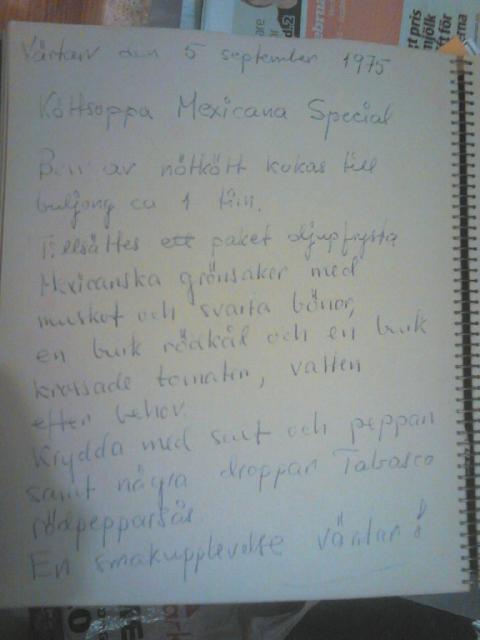 den 5 september 1975
Köttsoppa Mexicana Special
Ben av nötkött kokas till
buljong ca 1 tim.
Tillsättes ett paket djupfrysta
Mexicanska grönsaker med
muskot och svarta bönor,
en burk rödkål och en burk
krossade tomater, vatten
efter behov.
Krydda med salt och peppar
samt några droppar Tabasco
rödpepparsås.
En smakupplevelse väntar!